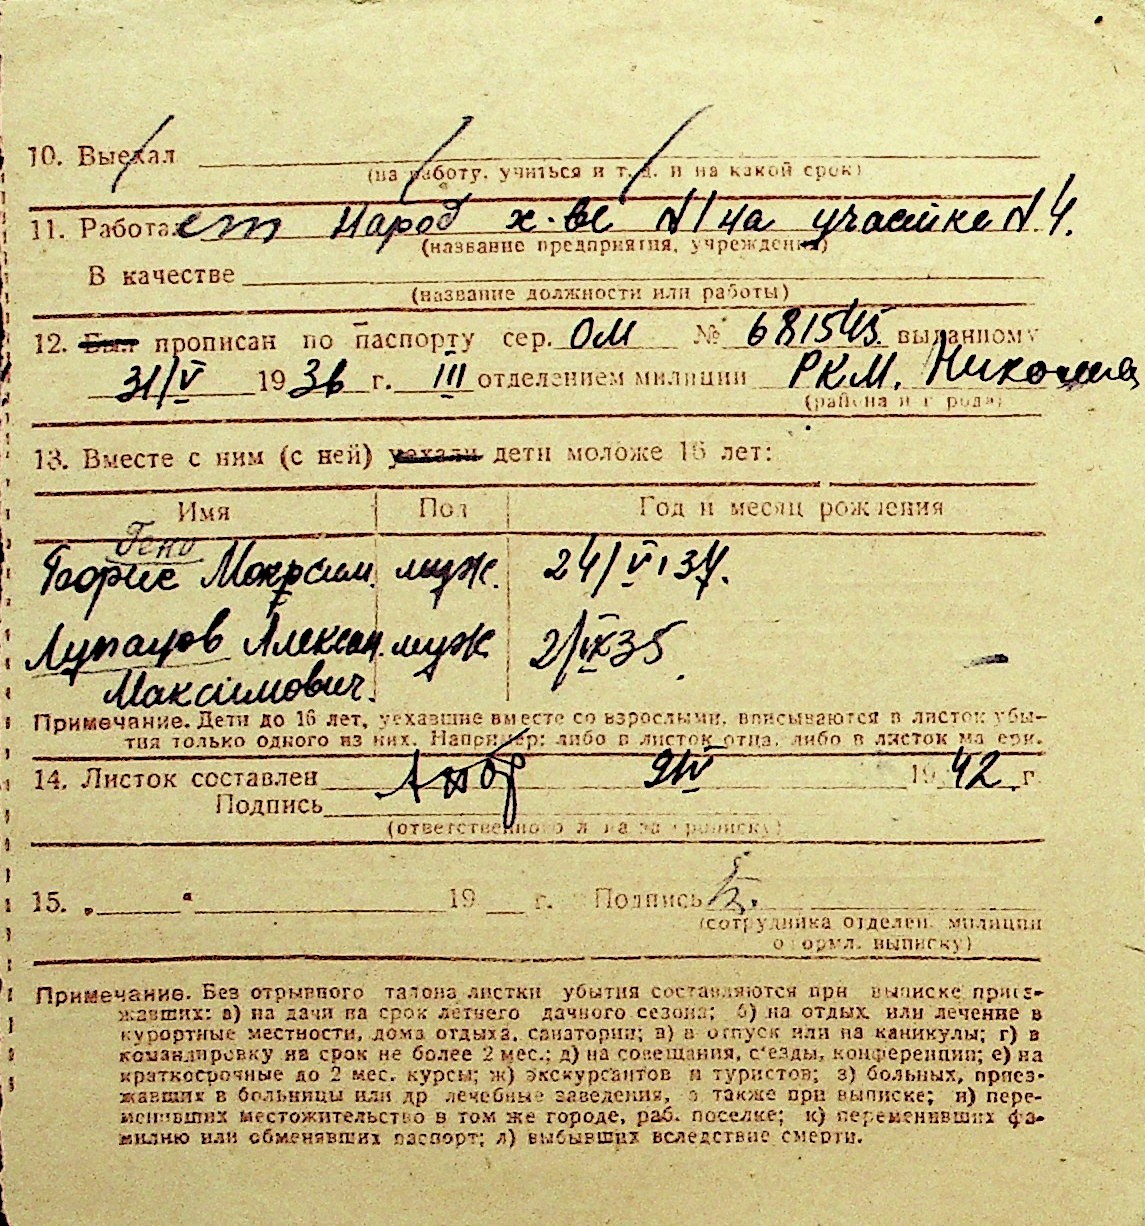 10. Выехал
(на работу, учиться и т. д. и на какой срок)
11. Работает Народ х-ве N 1 на участке N 4.
(название предприятия, учреждения)
В качестве
(название должности или работы)
12. Был прописан по паспорту сер. ОМ № 681545. выданному
31/V 1936 г. III отделением милиции РКМ.
(района и города)
13. Вместе с ним (с ней) уехали дети моложе 16 лет:
Имя Пол Год и месяц рождения
муж. 24/V 37.
Александ. муж 2/IX 35
Максимович.
Примечание. Дети до 16 лет, уехавшие вместе со взрослыми, вписываются в листок убы-
тия только одного из них. Например: либо в листок отца, либо в листок матери.
14. Листок составлен 9/IV 1942 г.
Подпись
(ответственного лица за прописку)
15. „ “ 19 г. Подпись
(сотрудника отделен. милиции
оформл. выписку)
Примечание. Без отрывного талона листки убытия составляются при выписке приез-
жавших: а) на дачи на срок летнего дачного сезона; б) на отдых или лечение в
курортные местности, дома отдыха, санатории; в) в отпуск или на каникулы; г) в
командировку на срок не более 2 мес.; д) на совещания, с'езды, конференции; е) на
краткосрочные до 2 мес. курсы; ж) экскурсантов и туристов; з) больных, приез-
жавших в больницы или др лечебные заведения, а также при выписке; и) пере-
менивших местожительство в том же городе, раб. поселке; к) переменивших фа-
милию или обменявших паспорт; л) выбывших вследствие смерти.